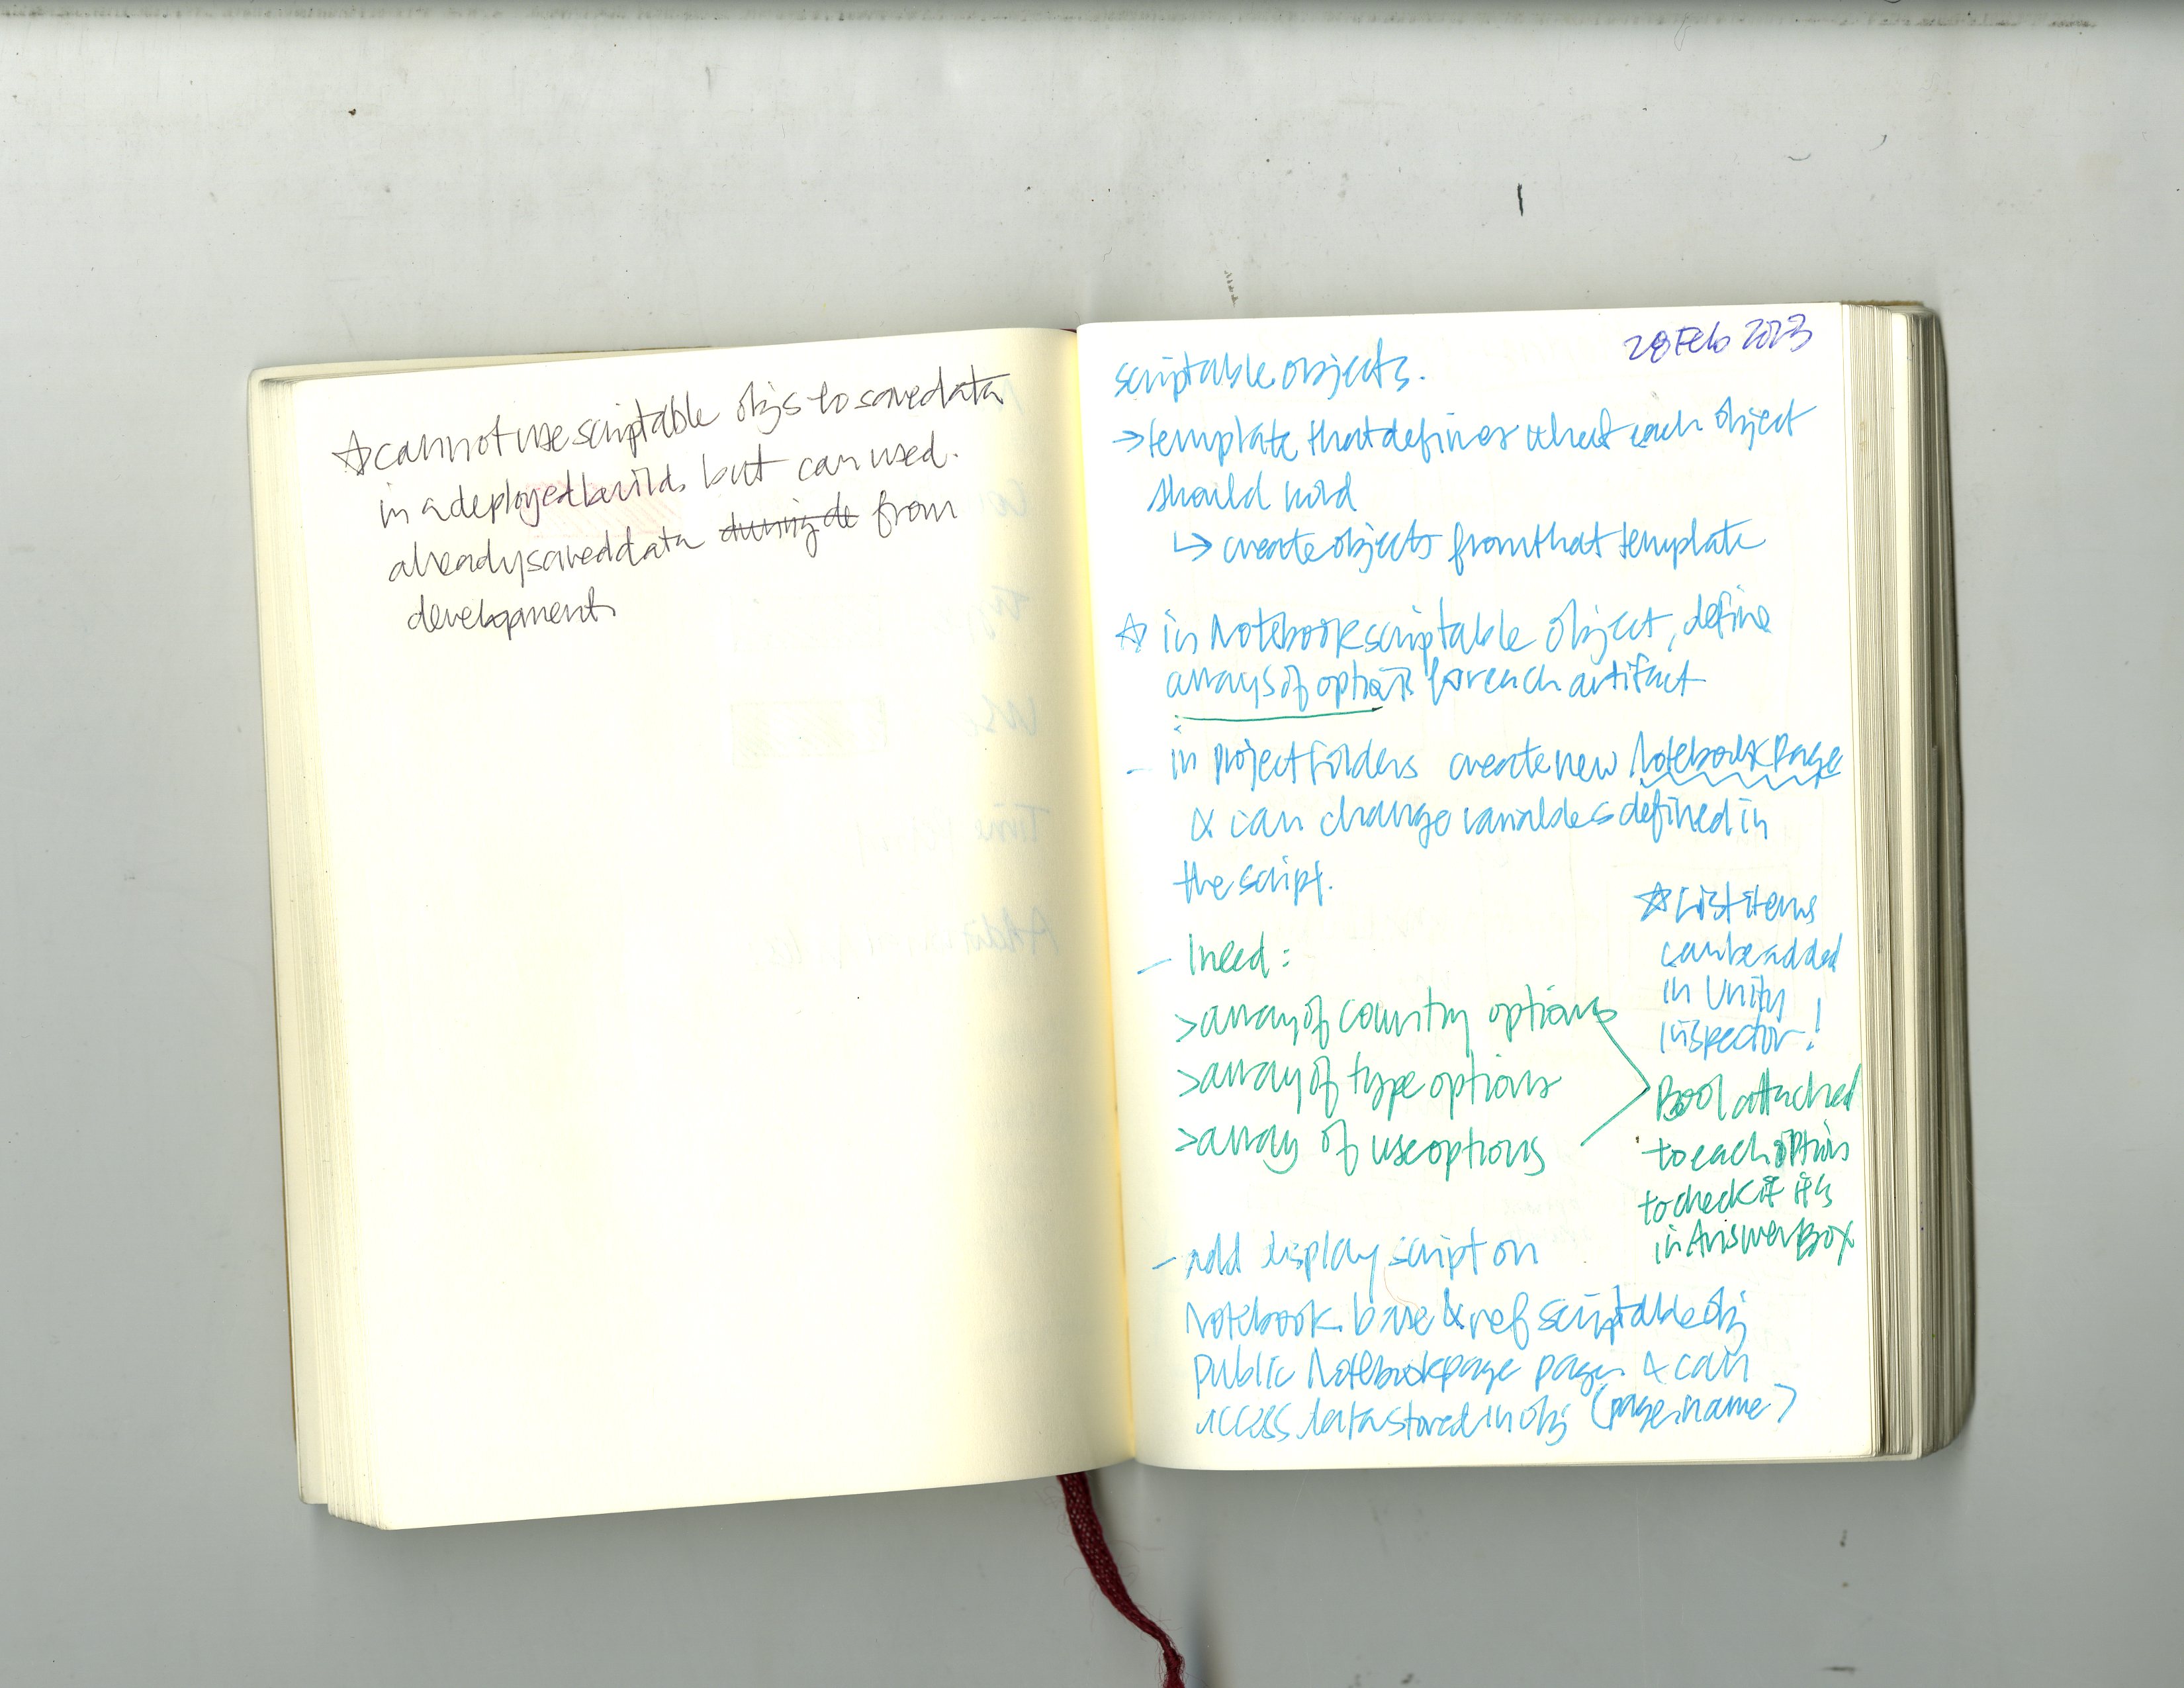 ☆ cannot use scriptable objs to save data
in a deployed build, but can used.
already saved data during de from
development
28 Feb 2023
scriptable objects.
→ template that defines what each object
should hold
↳ create objects from that template
☆ in Notebook scriptable object, define
arrays of options for each artifact
- in project folders create new NotebookPage
& can change variables defined in
the script.
☆ List items
can be added
in Unity
Inspector!
- I need:
> array of country options
> array of type options
> array of use options
Bool attached
to each option
to check if it's
in AnswerBox
- add display script on
Notebook base & ref scriptable obj
public Notebookpage page & can
access data stored in obj (page.name)